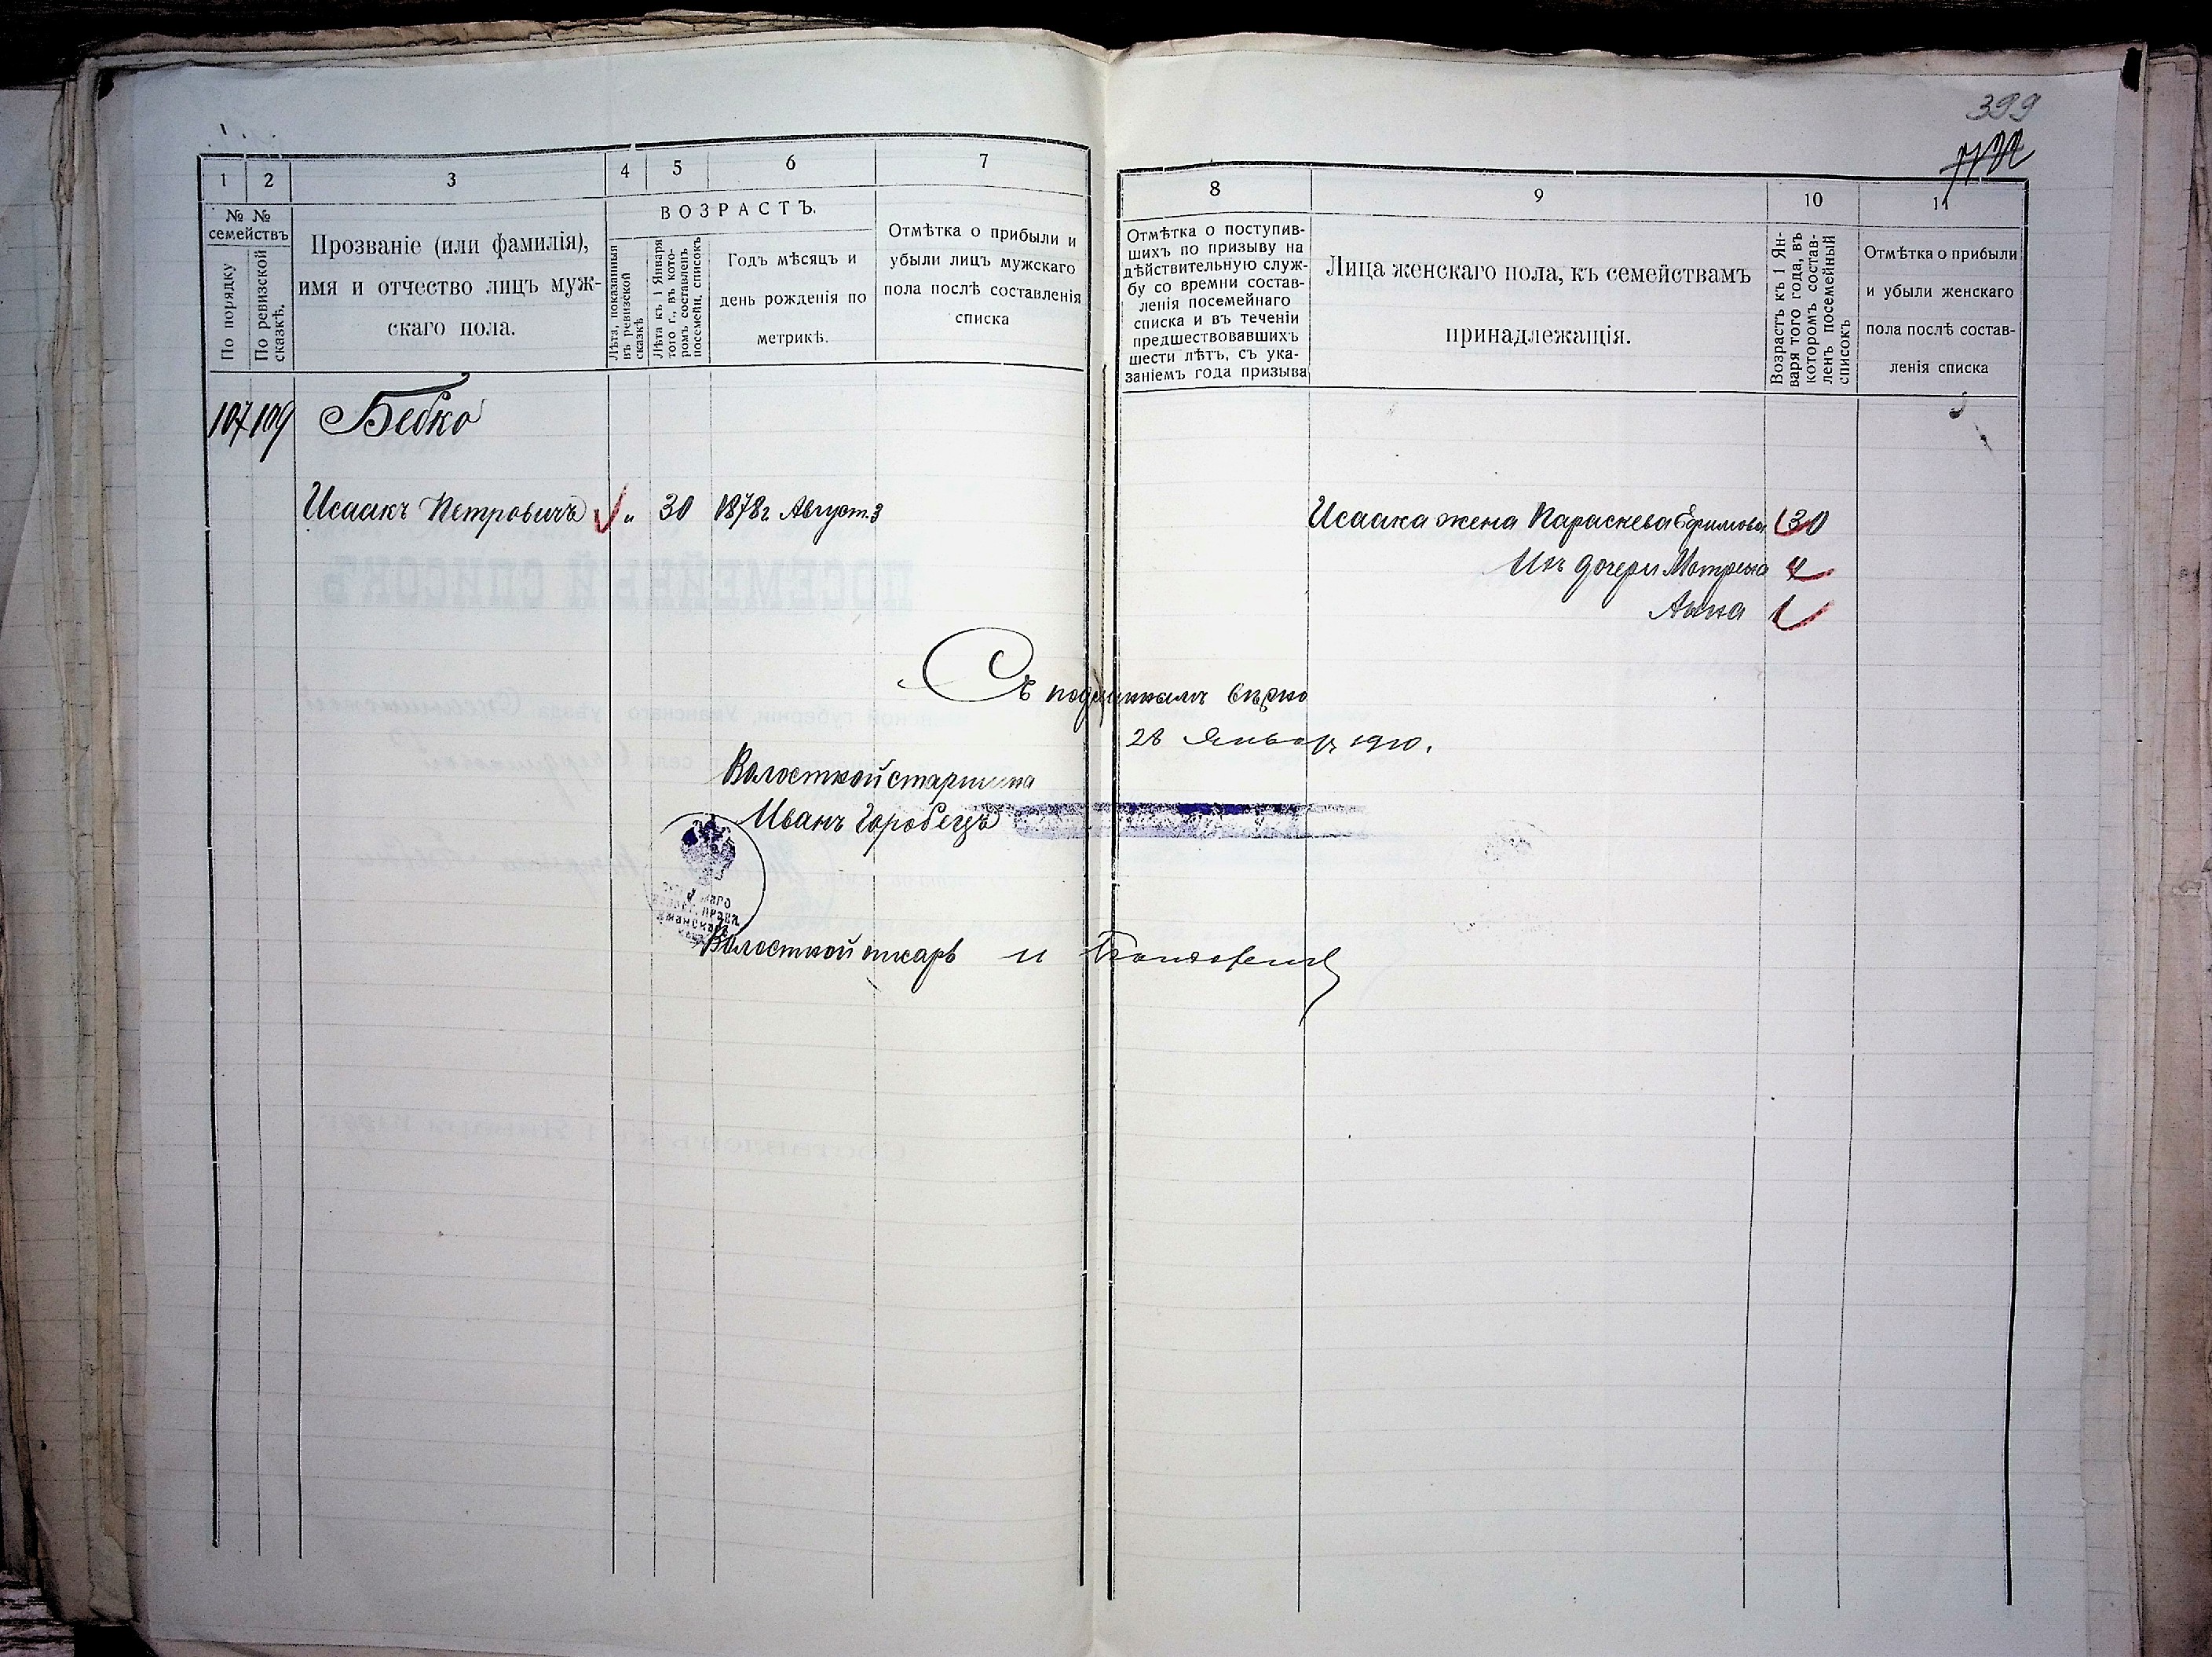 399
1
2
3
4
5
6
7
№ №
семействъ
По порядку
По ревизской
сказкѣ.
Прозваніе (или фамилія),
имя и отчество лицъ муж-
скаго пола.
ВОЗРАСТЪ.
Лѣта, показанныя
въ ревизской
сказкѣ
Лѣта къ 1 Января
того г., въ кото-
ромъ составленъ
посемейн. списокъ
Годъ мѣсяцъ и
день рожденія по
метрикѣ.
Отмѣтка о прибыли и
убыли лицъ мужскаго
пола послѣ составленія
списка
107
109
Бебко
Исаакъ Петровичъ " 30 1878 г. Август. 3
8
9
10
11
Отмѣтка о поступив-
шихъ по призыву на
дѣйствительную служ-
бу со времни состав-
ленія посемейнаго
списка и въ теченіи
предшествовавшихъ
шести лѣтъ, съ ука-
заніемъ года призыва
Лица женскаго пола, къ семействамъ
принадлежащія.
Возрастъ къ 1 Ян-
варя того года, въ
которомъ состав-
ленъ посемейный
списокъ
Отмѣтка о прибыли
и убыли женскаго
пола послѣ состав-
ленія списка
Исаака жена Параскева Ефимова 30
Ихъ дочери Матрена 4
Анна 1
Съ подлиннымъ вѣрно
28 Январ 1910.
Волостной старшина
Иванъ Горобець
Волостной писарь И